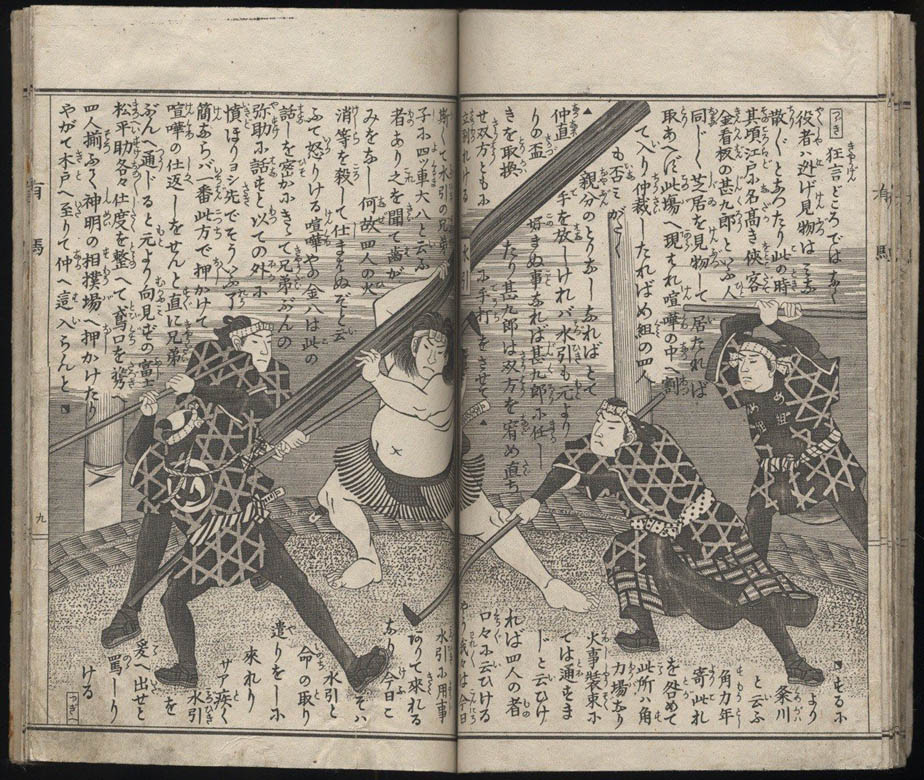 つゞき
狂言どころでは
役者ハ迯げ見物は
散〲とあつたり此の時
其頃江戸に名高き侠客
金看板の甚九郎といふ人
同じく芝居を見物して居たれば
取あへず此場へ現はれ喧嘩の中へ割
て入り仲裁したればめ組の四人
も否ミがたく
親分のとりなしなればとて
手を放しければ水引も元より
好まぬ事なれば甚九郎に任し
たり甚九郎は双方を宥め直ち
に手打をさせて▲
▲仲直
りの盃
きを取換
せ双方ともに
立別れける
水引
斯して水引の兄弟
子に四ツ車大八と云ふ
者あり之を聞て歯が
みをなし何故四人の火
消等を殺して仕まはぬぞと云
ふて怒りける喧嘩やの金八は此の
話しを密かにきゝて兄弟ぶんの
弥助に話すと以ての外に
憤ほりヨシ死でそういふ了
簡ならバ一番此方で押かけて
喧嘩の仕返しをせんと直に兄弟
ぶんへ通ドると元より向見ずの富士
松平助各々仕度を整へて鳶口を携へ
四人揃ふて神明の相撲場へ押かけたり
やがて木戸へ至りて仲へ這入らんと
するに
より
粂川
と云ふ
角力年
寄此れ
を咎めて
此所ハ角
力場なり
火事装束に
ては通すま
じと云ひけ
れば四人の者
口々に云ひける
やう我々は今日
水引に用事
阿りて来れる
なり今日こ
そハ
水引と
命の取り
遣りをしに
来れり
サア疾く
水引
を
爰へ出せと
罵しり
ける
つゞき
め組
有馬
有馬
九